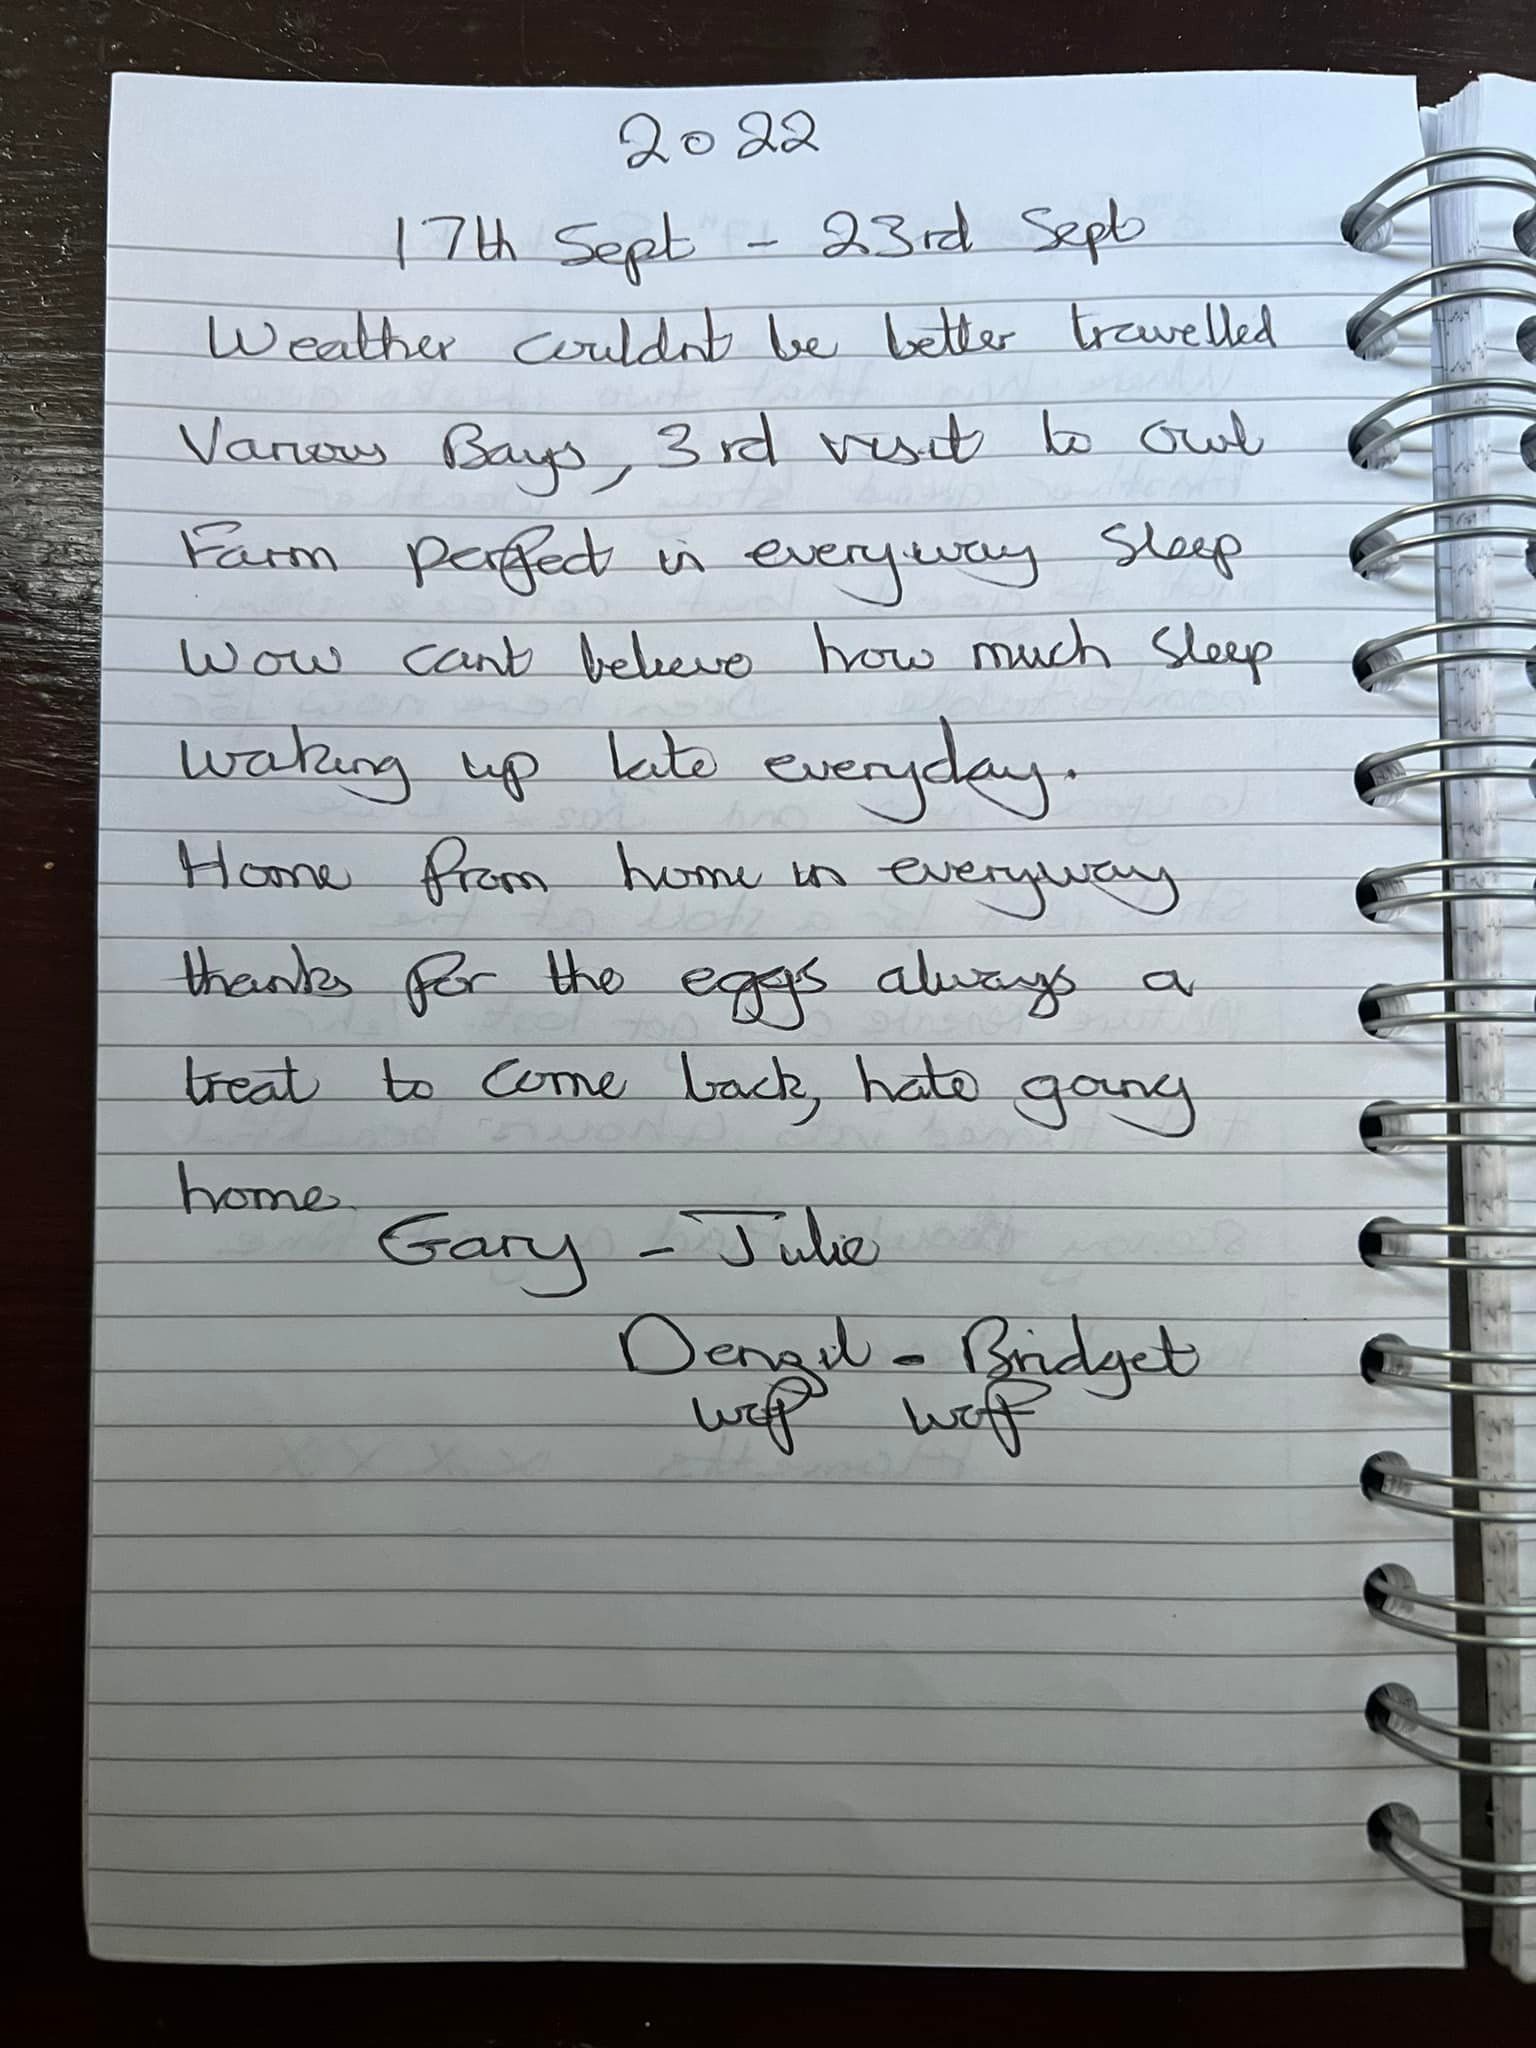 2022
17th Sept - 23rd Sept
Weather couldnt be better travelled
Various Bays, 3rd visit to Owl
Farm perfect in everyway Sleep
Wow cant believe how much Sleep
waking up late everyday.
Home from home in everyway
thanks for the eggs always a
treat to come back, hate going
home.
Gary - Julie
Denzil - Bridget
woff woff